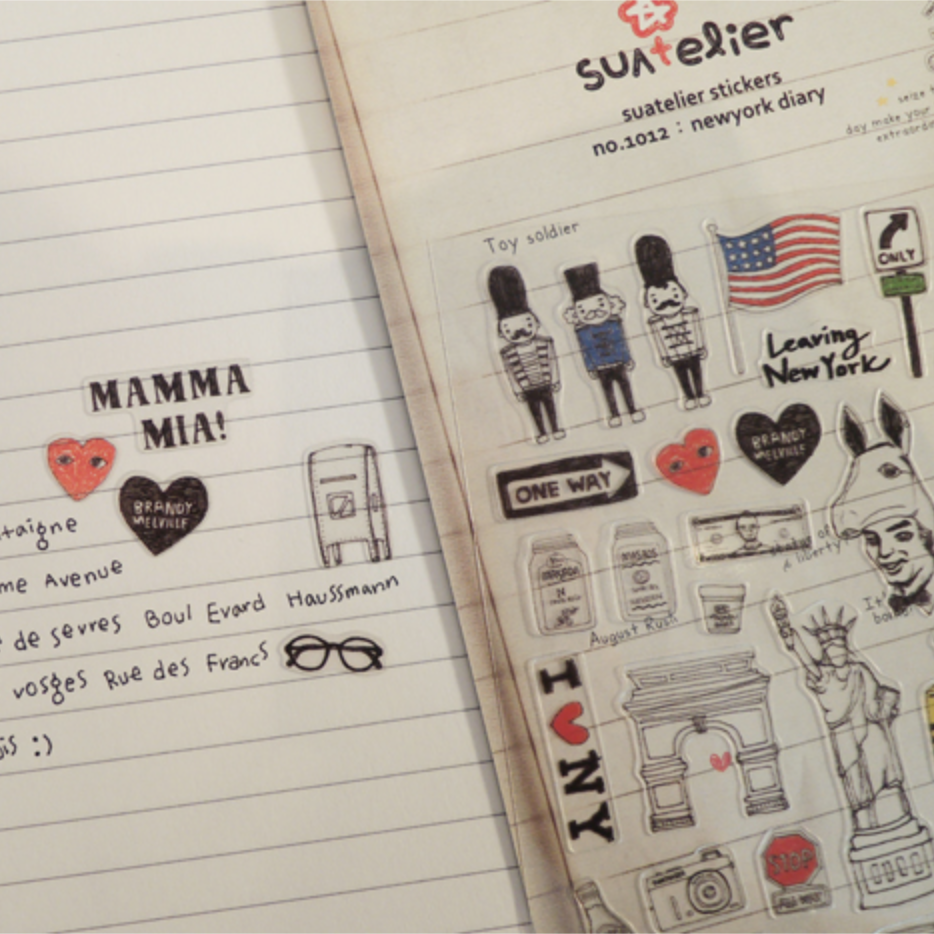 MAMMA
MIA!
BRANDY
MELVILLE
taigne
me Avenue
de sevres Boul Evard Haussmann
vosges Rue des Francs
is :)
suatelier
suatelier stickers
no.1012 : newyork diary
seize
day make your
extraord
Toy soldier
ONLY
Leaving
NewYork
ONE WAY
BRANDY
MELVILLE
statue of
liberty
August Rush
It
I
NY
STOP
ALL WAY